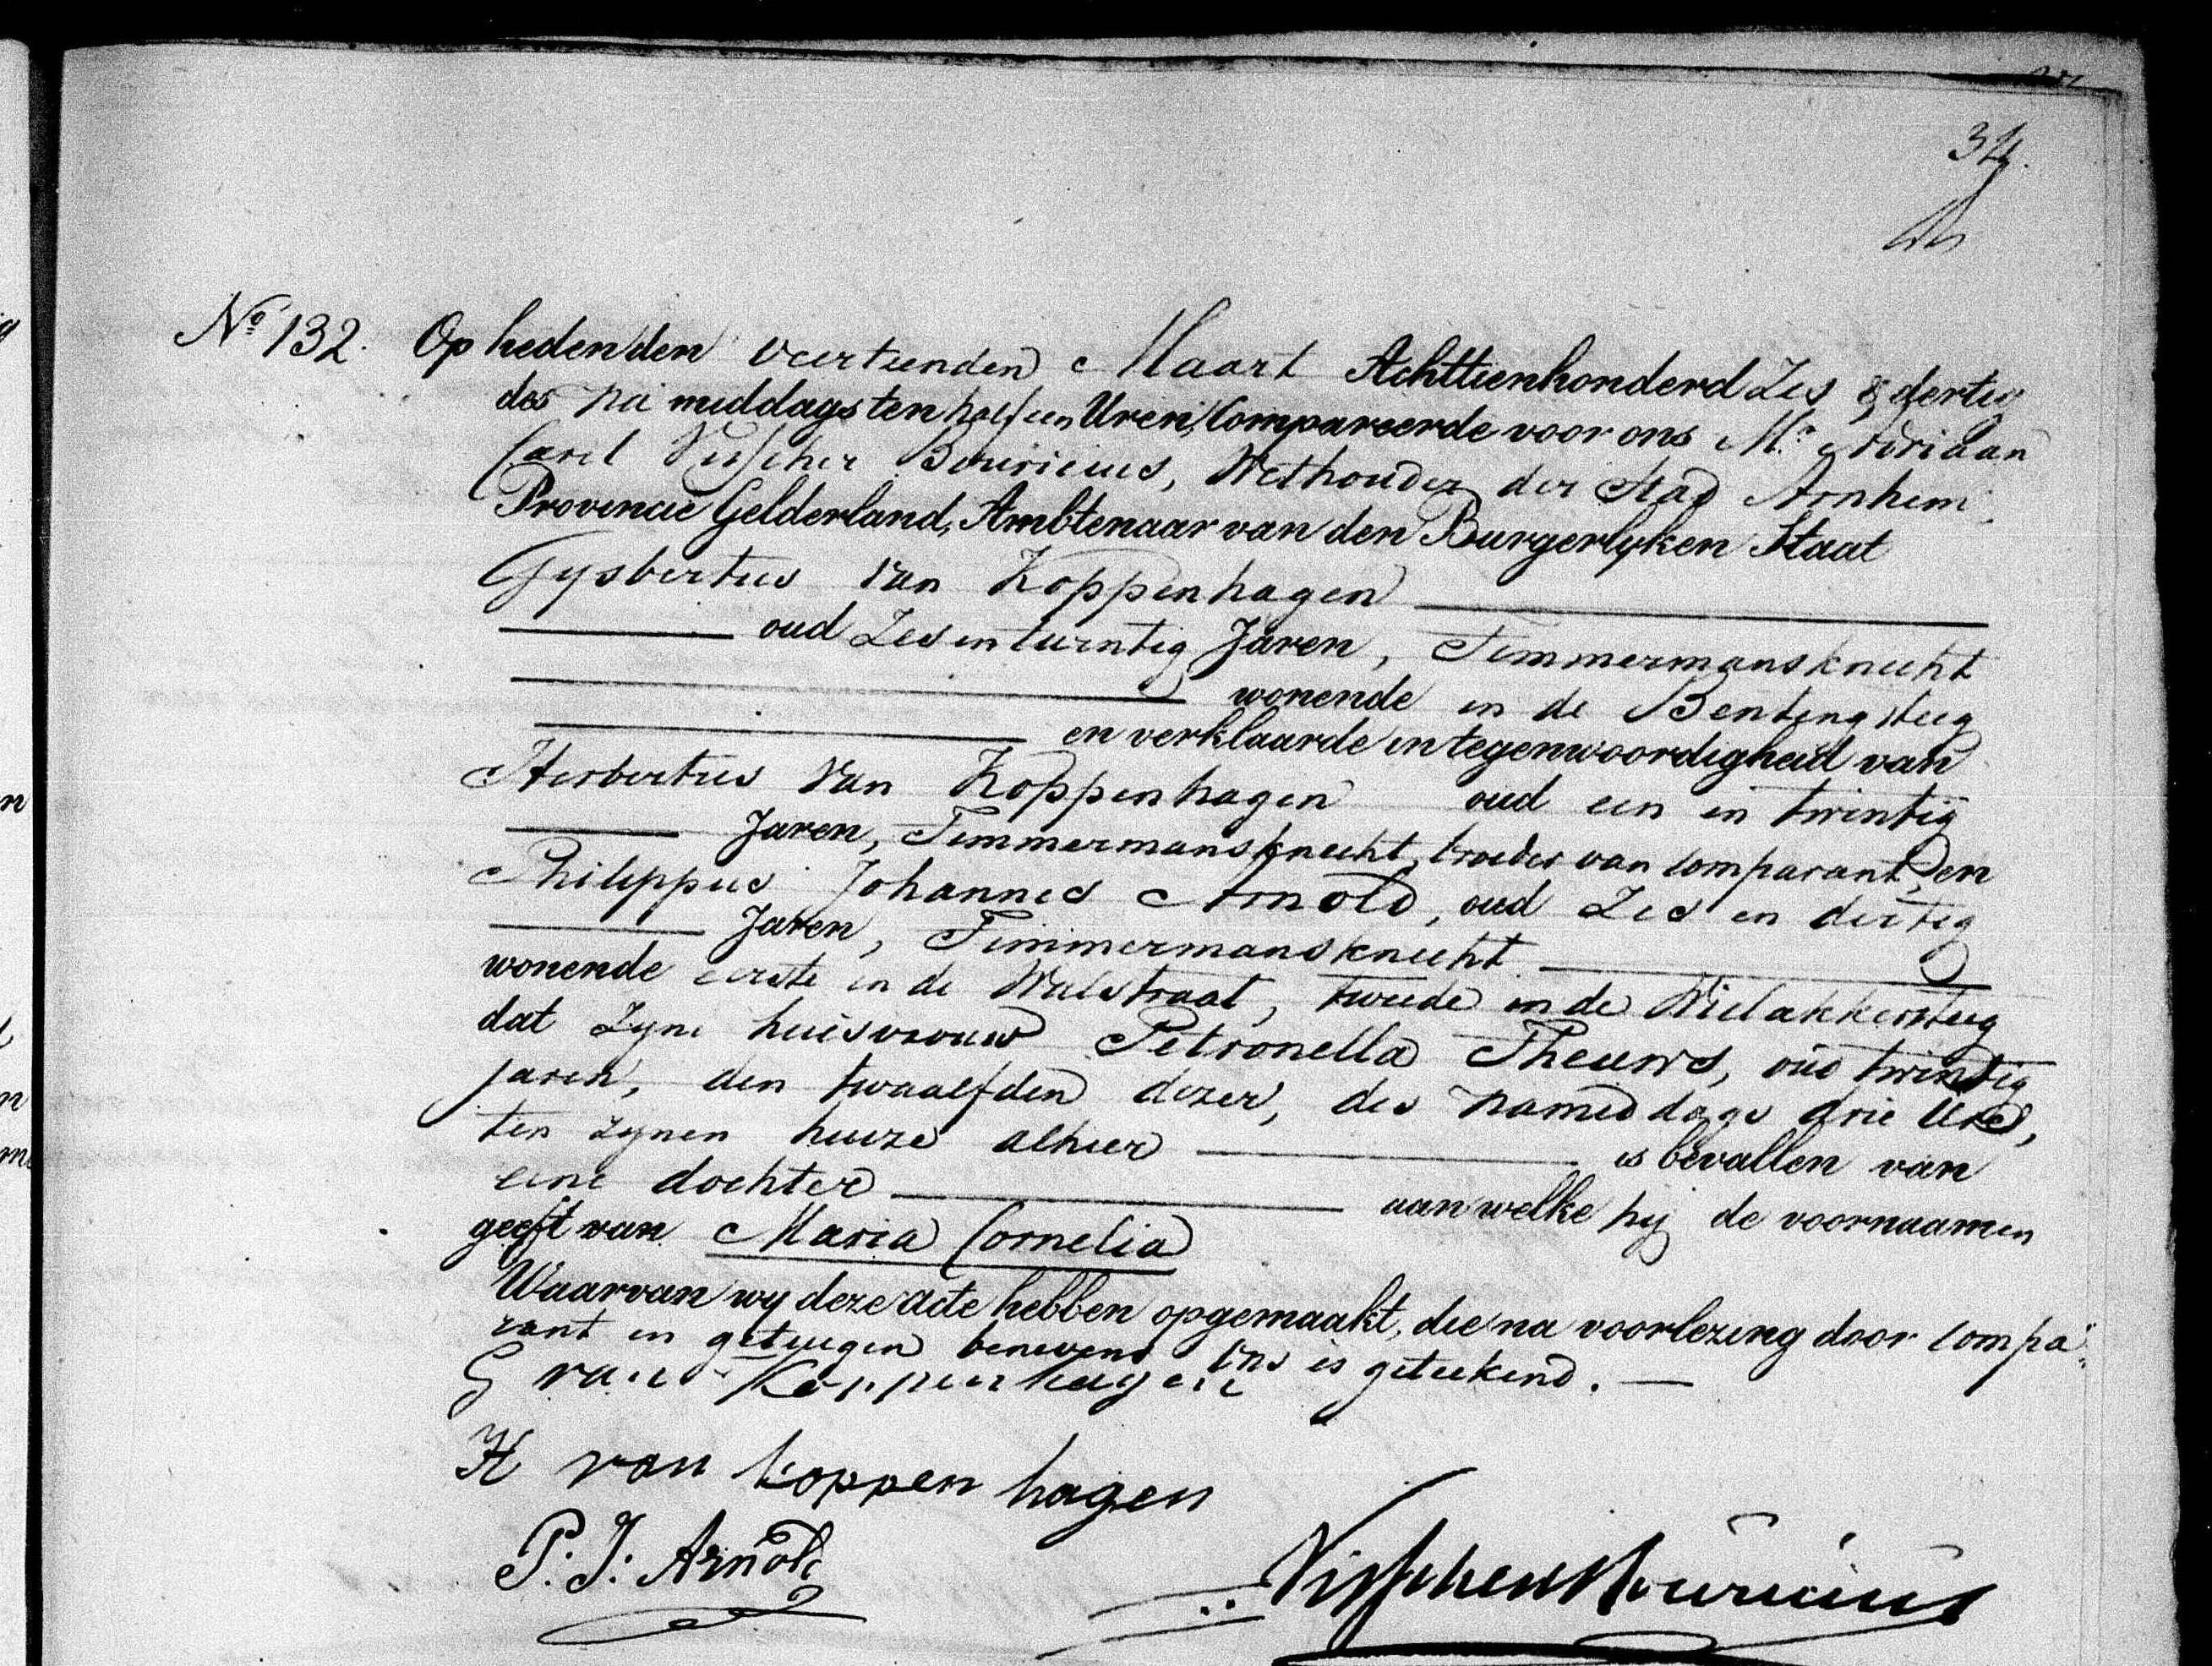 34.
No 132. Op heden den veertienden Maart Achttienhonderd Zes & dertig
des na middags ten half een Uren, Compareerde voor ons Mr. Adriaan
Carel Visscher Bouricius, Wethouder der Stad Arnhem
Provincie Gelderland, Ambtenaar van den Burgerlyken Staat
Gysbertus van Koppenhagen
oud Zes en twintig Jaren, Timmermansknecht
wonende in de Bentingsteeg
en verklaarde in tegenwoordigheid van
Herbertus van Koppenhagen oud een en twintig
Jaren, Timmermansknecht, broeder van comparant, en
Philippus Johannes Arnold, oud Zes en dertig
Jaren, Timmermansknecht
wonende eerste in de Walstraat, tweede in de Wielakkersteeg
dat zyne huisvrouw Petronella Theuws, oud twintig
jaren, den twaalfden dezer, des namiddags drie Ure,
ten zynen huize alhier is bevallen van
eene dochter aan welke hy de voornaamen
geeft van Maria Cornelia
Waarvan wy deze acte hebben opgemaakt, die na voorlezing door compa=
rant en getuigen benevens ons is geteekend.
G van Koppenhagen
H van koppen hagen
P. J. Arnold
Visscher Bouricius